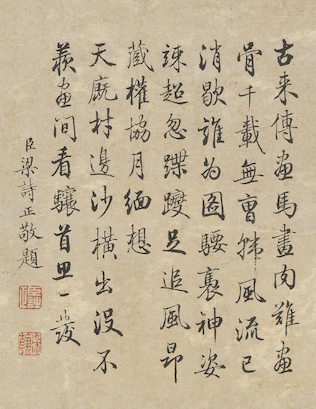 古来傳畫馬畫肉難畫
骨千載無曹韓風流已
消歇誰為圖騕褭神姿
竦超忽蹀躞足追風昂
藏權協月緬想
天厩材邊沙橫出沒不
羨畫間看驤首思一發
臣梁詩正敬題